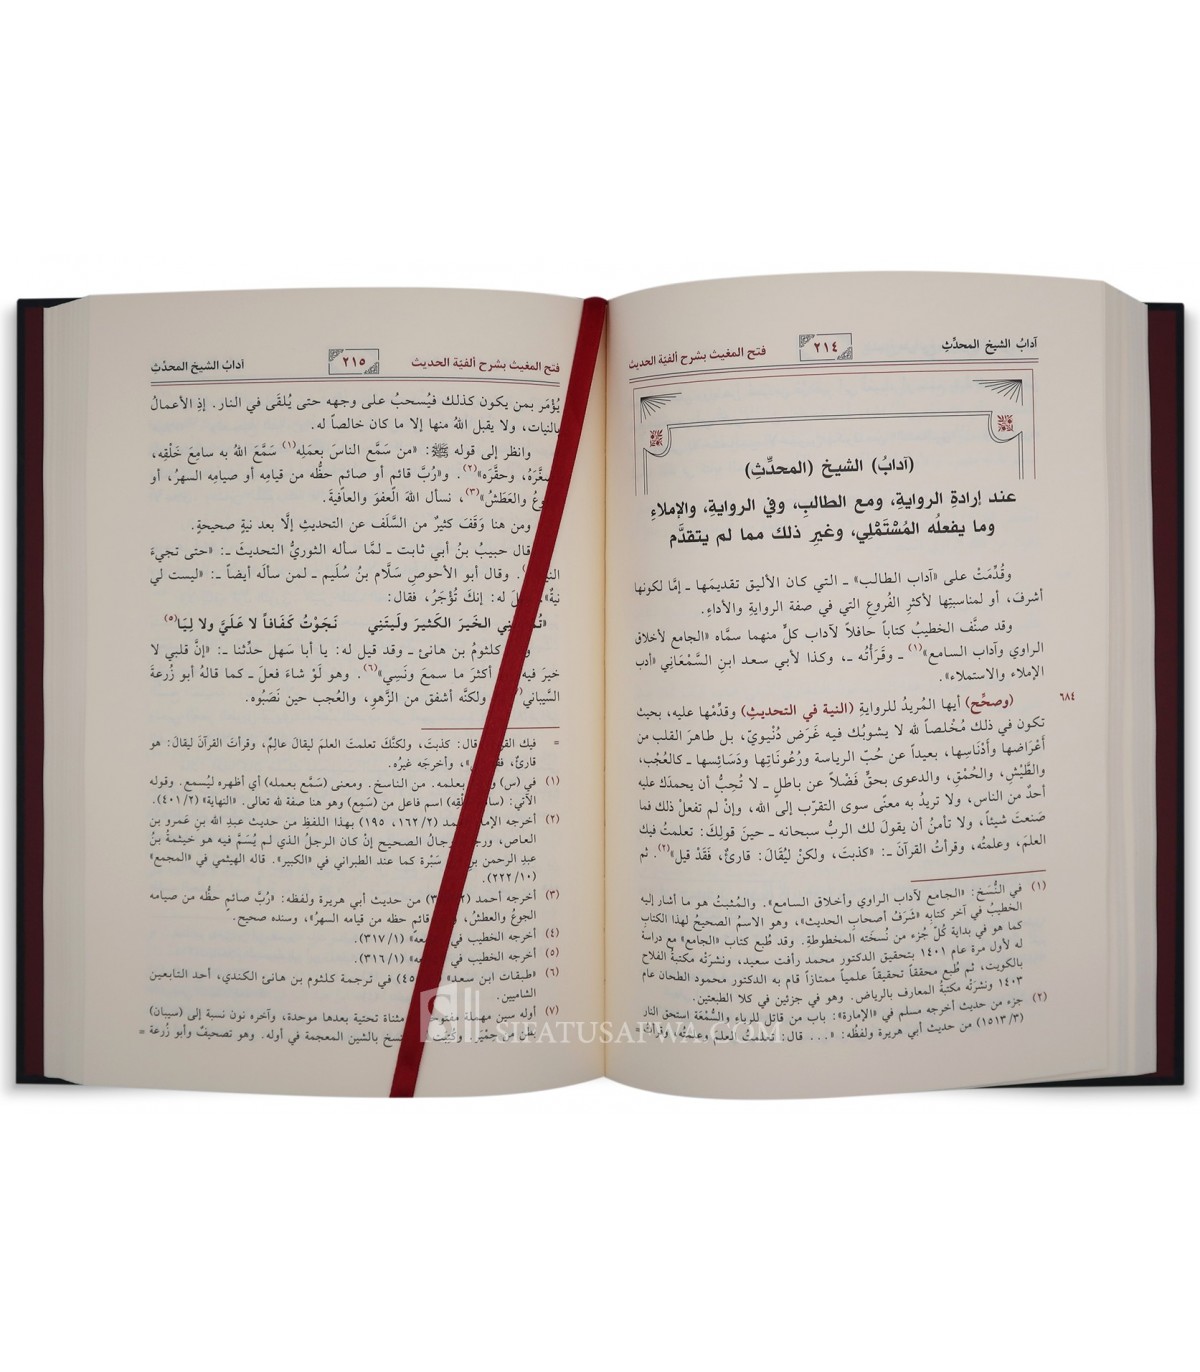 آدابُ الشيخ المحدِّثِ
٢١٤
فتح المغيث بشرح ألفيّة الحديث
(آدابُ) الشيخ (المحدِّثِ)
عند إرادةِ الروايةِ، ومع الطالبِ، وفي الروايةِ، والإملاءِ
وما يفعلُه المُسْتَمْلِي، وغيرِ ذلك مما لم يتقدَّم
وقُدِّمَتْ على «آداب الطالب» ـ التي كان الأليق تقديمَها ـ إمَّا لكونها
أشرفَ، أو لمناسبتِها لأكثرِ الفُروعِ التي في صفة الروايةِ والأداءِ.
وقد صنَّف الخطيبُ كتاباً حافلاً لآداب كلٍّ منهما سمَّاه «الجامع لأخلاق
الراوي وآداب السامع»(١) ـ وقَرَأْتُه ـ، وكذا لأبي سعد ابنِ السَّمْعَانِي «أدب
الإملاء والاستملاء».
٦٨٤
(وصحِّح) أيها المُريدُ للروايةِ (النية في التحديثِ) وقدِّمْها عليه، بحيث
تكون في ذلك مُخْلصاً لله لا يشوبُك فيه غَرَض دُنْيويّ، بل طاهرَ القلب من
أَعْرَاضها وأَدْنَاسِها، بعيداً عن حُبّ الرياسة ورُعُونَاتِها ودَسَائِسِها ـ كالعُجْب،
والطَّيْشِ، والحُمْقِ، والدعوى بحقٍّ فَضْلاً عن باطلٍ ـ لا تُحِبُّ أن يحمدَكَ عليه
أحدٌ من الناس، ولا تريدُ به معنًى سوى التقرّب إلى الله، وإنْ لم تفعلْ ذلك فما
صَنعتَ شيئاً، ولا تأمنُ أن يقولَ لك الربُّ سبحانه ـ حينَ قولِكَ: تعلمتُ فيك
العلمَ، وعلمتُه، وقرأتُ القرآنَ ـ: «كذبتَ، ولكنْ ليُقَالَ: قارئٌ، فَقَدْ قيل»(٢). ثم
(١) في النُّسَخِ: «الجامع لآداب الراوي وأخلاق السامع». والمُثبتُ هو ما أشار إليه
الخطيبُ في آخر كتابه «شَرَفُ أصحابِ الحديث»، وهو الاسمُ الصحيحُ لهذا الكتابِ
كما هو في بداية كُلِّ جُزء من نُسخَته المخطوطةِ. وقد طُبع كتاب «الجامع» مع دراسة
له لأول مرة عام ١٤٠١ بتحقيق الدكتور محمد رأفت سعيد، ونشرَتْه مكتبةُ الفلاح
بالكويت، ثم طُبع محققاً تحقيقاً علمياً ممتازاً قام به الدكتور محمود الطحان عام
١٤٠٣ ونشرَتْه مكتبةُ المعارف بالرياض. وهو في جزئين في كلا الطبعتين.
(٢) جزء من حديث أخرجه مسلم في «الإمارة»: باب من قاتل للرياء والسُّمْعَة استحق النار
(٣/ ١٥١٣) من حديث أبي هريرة ولفظُه: «... قال: تعلمتُ العلمَ وعلمتُه، وقرأتُ =
فتح المغيث بشرح ألفيّة الحديث
٢١٥
آدابُ الشيخ المحدِّثِ
يُؤْمَر بمن يكون كذلك فيُسحبُ على وجهه حتى يُلقَى في النار. إذِ الأعمالُ
بالنيات، ولا يقبل اللهُ منها إلا ما كان خالصاً له.
وانظر إلى قوله ﷺ: «من سَمَّع الناسَ بعمَلِه(١) سَمَّعَ اللهُ به سامِعَ خَلْقِه،
وصغَّرَهُ، وحقَّرَه»(٢). و«رُبَّ قائم أو صائم حظُّه من قيامِه أو صيامِه السهرُ، أو
الجوعُ والعَطَشُ»(٣)، نسأل اللهَ العفوَ والعافيةَ.
ومن هنا وَقَفَ كثيرٌ من السَّلَف عن التحديثِ إلَّا بعد نيةٍ صحيحةٍ.
قال حبيبُ بنُ أبي ثابت ـ لمَّا سأله الثوريُّ التحديثَ ـ: «حتى تجيءَ
. وقال أبو الأحوصِ سَلَّام بنُ سُلَيم ـ لمن سألَه أيضاً ـ: «ليست لي
نيةٌ» له: إنكَ تُؤْجَرُ، فقال:
الخَيرَ الكَثيرَ ولَيتَنِي نَجَوْتُ كَفَافاً لا عَلَيَّ ولا لِيَا(٥)
كلثومُ بن هانئ ـ وقد قيل له: يا أبا سَهل حدِّثنا ـ: «إنَّ قلبي لا
خيرَ فيه أكثرَ ما سمعَ ونَسِي»(٦). وهو لَوْ شاءَ فعلَ ـ كما قالهُ أبو زُرعةَ
السَّيباني ولكنَّه أشفق من الزَّهوِ، والعُجب حين نَصَبُوه.
= فيك قال: كذبتَ، ولكنَّكَ تعلمتَ العلمَ ليقالَ عالِمٌ، وقرأتَ القرآنَ ليقالَ: هو
قارئٌ، ، وأخرجَه غيرُه.
(١) في (س) بعلمه. من الناسخ. ومعنى (سَمَّع بعمله) أي أظهره ليُسمع. وقوله
الآتي: اسم فاعل من (سَمِع) وهو هنا صفة لله تعالى. «النهاية» (٢/ ٤٠١).
(٢) أخرجه (٢/ ١٦٢، ١٩٥) بهذا اللفظِ من حديث عبدِ الله بنِ عَمرو بن
العاص، رجالُ الصحيح إنْ كان الرجلُ الذي لم يُسَمَّ فيه هو خيثمةُ بنُ
عبدِ الرحمنِ بنِ سَبْرة كما عند الطبراني في «الكبير». قاله الهيثمي في «المجمع»
(١٠/ ٢٢٢).
(٣) أخرجه أحمد من حديث أبي هريرة ولفظه: «رُبَّ صائمٍ حظُّه من صيامه
الجوعُ والعطشُ، قائم حظه من قيامه السهرُ»، وسنده صحيح.
(٤) أخرجه الخطيب في (١/ ٣١٧).
(٥) أخرجه الخطيب في (١/ ٣١٦).
(٦) «طبقات ابن سعد» في ترجمة كلثوم بن هانئ الكندي، أحد التابعين
الشاميين.
(٧) أوله سين مهملة مثناة تحتية بعدها موحدة، وآخره نون نسبة إلى (سيبان)
بطن من حِمْيَر. بالشين المعجمة في أوله. وهو تصحيفٌ وأبو زُرعة =
SIFATUSAFWA.COM